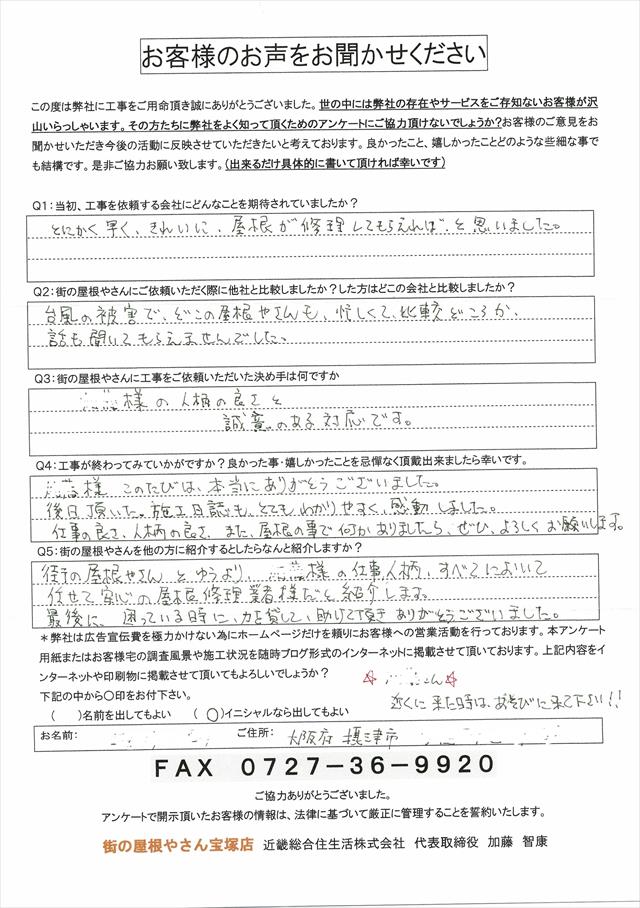 お客様のお声をお聞かせください
この度は弊社に工事をご用命頂き誠にありがとうございました。世の中には弊社の存在やサービスをご存知ないお客様が沢
山いらっしゃいます。その方たちに弊社をよく知って頂くためのアンケートにご協力頂けないでしょうか?お客様のご意見をお
聞かせいただき今後の活動に反映させていただきたいと考えております。良かったこと、嬉しかったことどのような些細な事で
も結構です。是非ご協力お願い致します。(出来るだけ具体的に書いて頂ければ幸いです)
Q1:当初、工事を依頼する会社にどんなことを期待されていましたか?
とにかく早く、きれいに、屋根が修理してもらえれば、と思いました。
Q2:街の屋根やさんにご依頼いただく際に他社と比較しましたか?した方はどこの会社と比較しましたか?
台風の被害で、どこの屋根やさんも、忙しくて、比較どころか、
話も聞いてもらえませんでした。
Q3:街の屋根やさんに工事をご依頼いただいた決め手は何ですか
様の人柄の良さと
誠意のある対応です。
Q4:工事が終わってみていかがですか?良かった事・嬉しかったことを忌憚なく頂戴出来ましたら幸いです。
様 このたびは、本当にありがとうございました。
後日頂いた。施工日誌も、とてもわかりやすく、感動しました。
仕事の良さ、人柄の良さ、また、屋根の事で何かありましたら、ぜひ、よろしくお願いします。
Q5:街の屋根やさんを他の方に紹介するとしたらなんと紹介しますか?
街の屋根やさんとゆうより、様の仕事、人柄、すべてにおいて
任せて安心の屋根修理業者様だと紹介します。
最後に、困っている時に、力を貸して、助けて頂きありがとうございました。
*弊社は広告宣伝費を極力かけない為にホームページだけを頼りにお客様への営業活動を行っております。本アンケート
用紙またはお客様宅の調査風景や施工状況を随時ブログ形式のインターネットに掲載させて頂いております。上記内容をイ
ンターネットや印刷物に掲載させて頂いてもよろしいでしょうか?
☆ さん☆
下記の中から〇印をお付下さい。
近くに来た時は、あそびに来て下さい!!
( )名前を出してもよい (〇)イニシャルなら出してもよい
お名前: ご住所: 大阪府 摂津市
FAX 0727-36-9920
ご協力ありがとうございました。
アンケートで開示頂いたお客様の情報は、法律に基づいて厳正に管理することを誓約いたします。
街の屋根やさん宝塚店 近畿総合住生活株式会社 代表取締役 加藤 智康